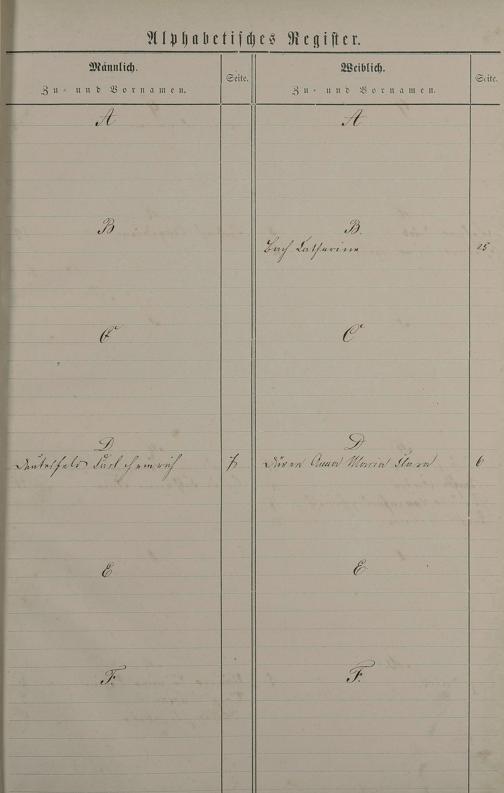 Alphabetisches Register.
Männlich.
Zu- und Vornamen.
Seite.
Weiblich.
Zu- und Vornamen.
Seite.
A
A
B
B.
Bach Catharine
25
C
C
D
D
Carl Heinrich
Anna Maria Clara
6
E
E
F.
F.